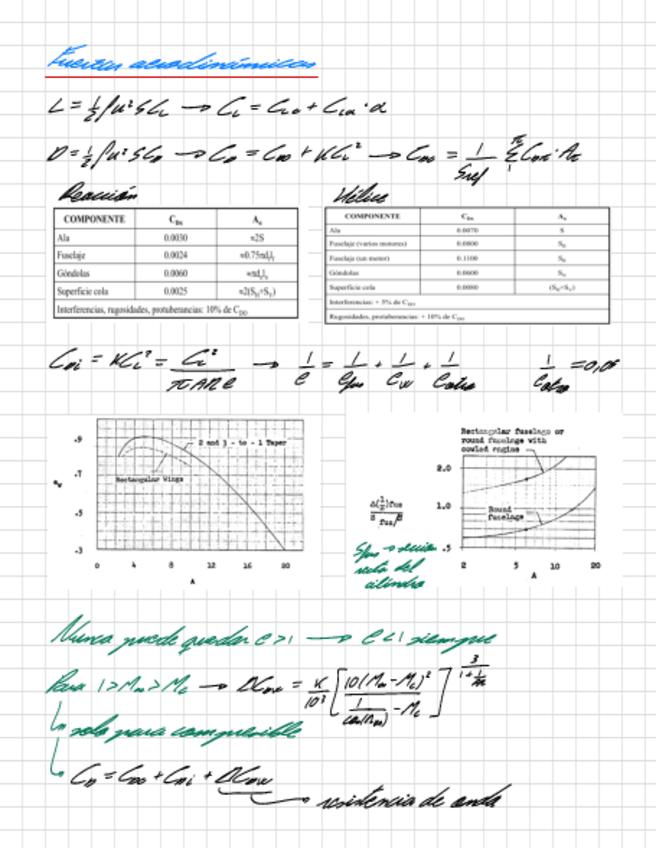 Fuerzas aerodinámicas
L = ½ρu²SC_L → C_L = C_L0 + C_Lα·α
D = ½ρu²SC_D → C_D = C_D0 + KC_L² → C_D0 = 1/Sref Σ C_Dπ·Aπ
Reacción
COMPONENTE C_Dπ Aπ
Ala 0.0030 ≈2S
Fuselaje 0.0024 ≈0.75πd_f l_f
Góndolas 0.0060 ≈πd_n l_n
Superficie cola 0.0025 ≈2(S_H+S_V)
Interferencias, rugosidades, protuberancias: 10% de C_D0
Hélice
COMPONENTE C_Dπ Aπ
Ala 0.0070 S
Fuselaje (varios motores) 0.0800
Fuselaje (un motor) 0.1100
Góndolas 0.0600
Superficie cola 0.0080 (S_H+S_V)
Interferencias: + 5% de C_D0
Rugosidades, protuberancias: + 10% de C_D0
C_Di = KC_L² = C_L²/πARe → 1/e = 1/e_fus + 1/e_w + 1/e_otro 1/e_otro = 0,05
.9
.7
.5
.3
e_w
2 and 3 - to - 1 Taper
Rectangular Wings
0 4 8 12 16 20
A
Rectangular fuselage or
round fuselage with
cowled engine
2.0
1.0
.5
Δ(1/e)fus
S fus/S
Round
fuselage
2 5 10 20
A
Sfus → sección
recta del
cilindro
Nunca puede quedar e>1 → e<1 siempre
Para 1>M∞>Mc → ΔC_Dw = K/10³ [10(M∞-Mc)² / (1/cos(Λ) - Mc)]
solo para compresible
C_D = C_D0 + C_Di + ΔC_Dw
resistencia de onda